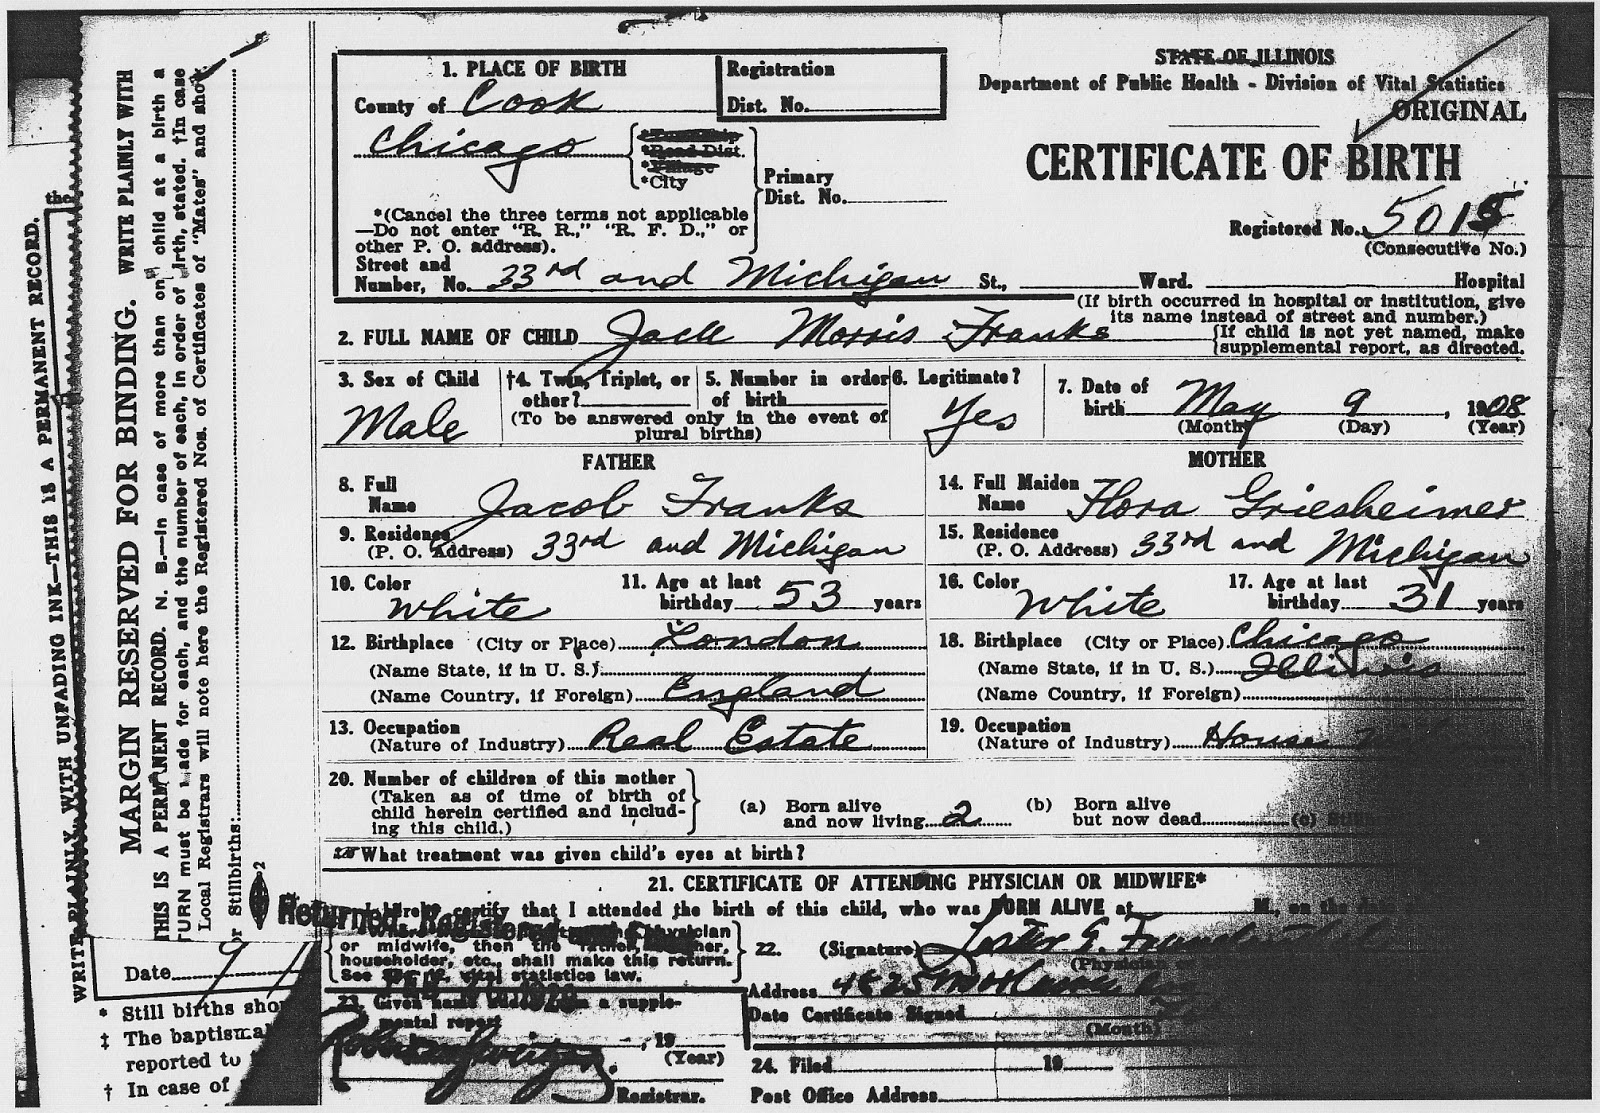 STATE OF ILLINOIS
Department of Public Health - Division of Vital Statistics
ORIGINAL
CERTIFICATE OF BIRTH
Registered No. 5015
(Consecutive No.)
1. PLACE OF BIRTH
County of Cook
Registration
Dist. No.
Chicago
*Township
*Road Dist
*Village
*City
Primary
Dist. No.
*(Cancel the three terms not applicable
—Do not enter "R. R.," "R. F. D.," or
other P. O. address).
Street and
Number, No. 33rd and Michigan St., Ward. Hospital
(If birth occurred in hospital or institution, give
its name instead of street and number.)
2. FULL NAME OF CHILD Jack Morris Franks
{If child is not yet named, make
supplemental report, as directed.
3. Sex of Child
Male
†4. Twin, Triplet, or
other?
5. Number in order
of birth
(To be answered only in the event of
plural births)
6. Legitimate?
Yes
7. Date of
birth May 9, 1908
(Month) (Day) (Year)
FATHER
8. Full
Name Jacob Franks
9. Residence
(P. O. Address) 33rd and Michigan
10. Color
White
11. Age at last
birthday 53 years
12. Birthplace (City or Place) London
(Name State, if in U. S.)
(Name Country, if Foreign) England
13. Occupation
(Nature of Industry) Real Estate
MOTHER
14. Full Maiden
Name Flora Griesheimer
15. Residence
(P. O. Address) 33rd and Michigan
16. Color
White
17. Age at last
birthday 31 years
18. Birthplace (City or Place) Chicago
(Name State, if in U. S.) Illinois
(Name Country, if Foreign)
19. Occupation
(Nature of Industry)
20. Number of children of this mother
(Taken as of time of birth of
child herein certified and includ-
ing this child.)
(a) Born alive
and now living 2
(b) Born alive
but now dead (c)
What treatment was given child's eyes at birth?
21. CERTIFICATE OF ATTENDING PHYSICIAN OR MIDWIFE*
I hereby certify that I attended the birth of this child, who was BORN ALIVE at M., on the
physician
or midwife, then the father,
householder, etc., shall make this return.
See vital statistics law.
22. (Signature) Lester E.
Address
Date Certificate Signed
(Month)
23. Given name a supple-
mental report
, 19
(Year)
Registrar.
24. Filed 19
Post Office Address
Returned
MARGIN RESERVED FOR BINDING. WRITE PLAINLY WITH
THIS IS A PERMANENT RECORD. N. B.—In case of more than on child at a birth a
TURN must be ade for each, and the number of each, in order of irth, stated. †In case
Local Registrars will note here the Registered Nos. of Certificates of "Mates" and show
or Stillbirths:
2
WRITE PLAINLY, WITH UNFADING INK—THIS IS A PERMANENT RECORD.
the
Date
* Still births sho
‡ The baptismal
reported to
† In case of